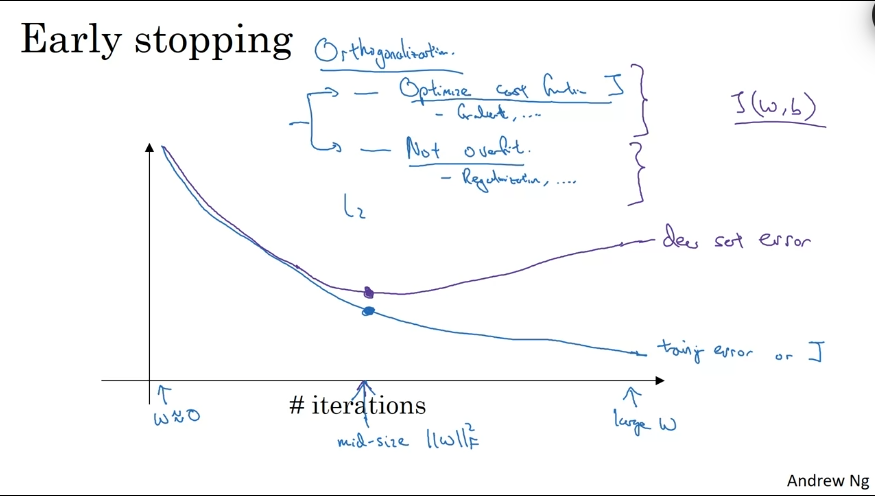 Early stopping
Orthogonalization.
— Optimize cost function J
- Gradient, ....
J(w,b)
— Not overfit.
- Regularization, ....
L2
dev set error
training error or J
w≈0
# iterations
mid-size ||w||²_F
large w
Andrew Ng